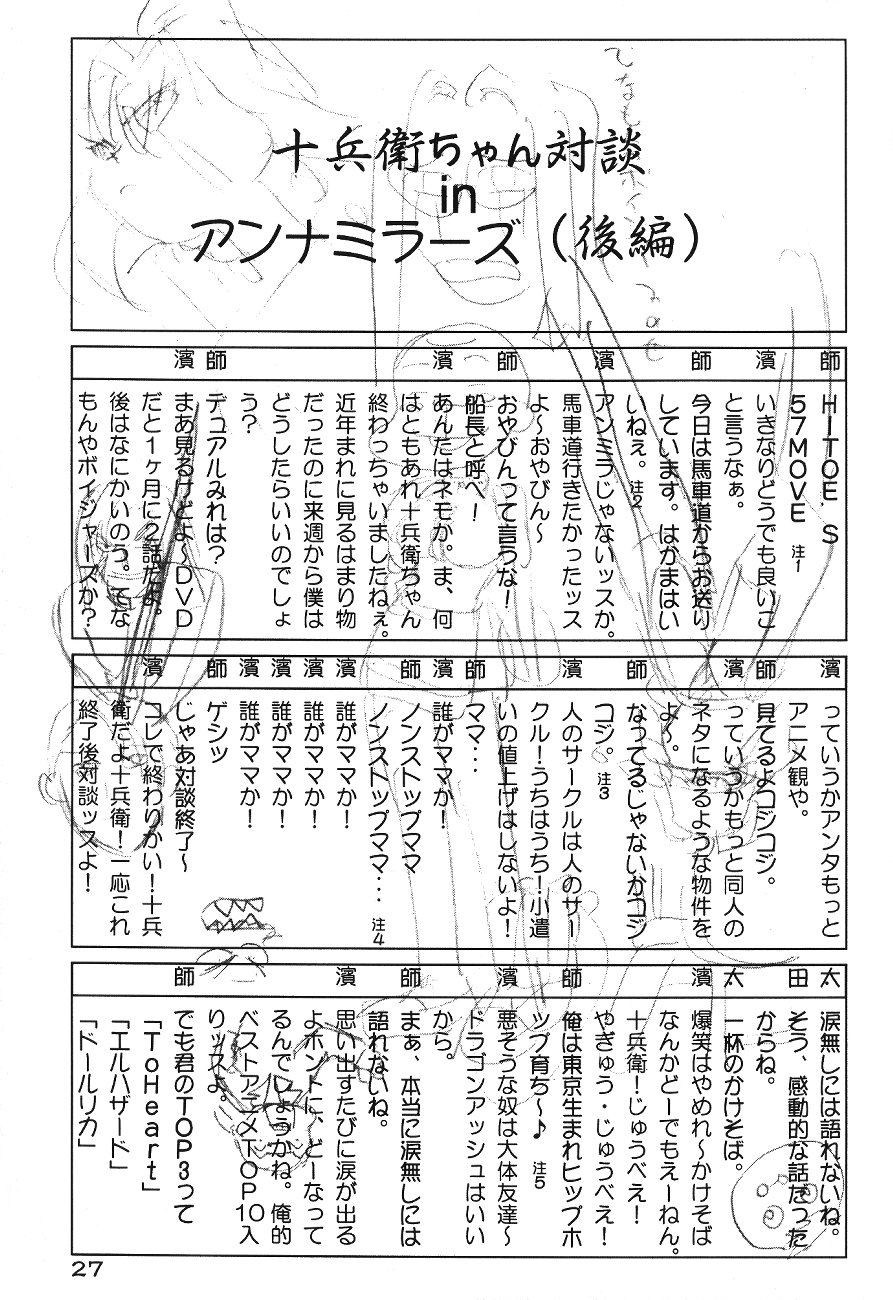 十兵衛ちゃん対談
in
アンナミラーズ（後編）
師
HITOE S
57MOVE 注1
濱
いきなりどうでも良いこ
と言うなぁ。
師
今日は馬車道からお送り
しています。はかまはい
いねぇ。注2
濱
アンミラじゃないッスか。
馬車道行きたかったッス
よ～おやびん～
師
おやびんって言うな！
船長と呼べ！
濱
あんたはネモか。ま、何
はともあれ十兵衛ちゃん
終わっちゃいましたねぇ。
近年まれに見るはまり物
だったのに来週から僕は
どうしたらいいのでしょ
う？
師
デュアルみれは？
濱
まあ見るけどよ～DVD
だと1ヶ月に2話だよ。
後はなにかいのう。てな
もんやボイジャーズか？
濱
っていうかアンタもっと
アニメ観や。
師
見てるよコジコジ。
濱
っていうかもっと同人の
ネタになるような物件を
よ～。
師
なってるじゃないかコジ
コジ。注3
濱
人のサークルは人のサー
クル！うちはうち！小遣
いの値上げはしないよ！
師
ママ…
濱
誰がママか！
師
ノンストップママ
ノンストップママ… 注4
濱
誰がママか！
濱
誰がママか！
濱
誰がママか！
濱
誰がママか！
師
ゲシッ
じゃあ対談終了～
濱
コレで終わりかい！十兵
衛だよ十兵衛！一応これ
終了後対談ッスよ！
太
涙無しには語れないね。
田
そう、感動的な話だった
からね。
太
一杯のかけそば。
濱
爆笑はやめれ～かけそば
なんかどーでもえーねん。
十兵衛！じゅうべえ！
やぎゅう・じゅうべえ！
師
俺は東京生まれヒップホ
ップ育ち～♪ 注5
濱
悪そうな奴は大体友達～
ドラゴンアッシュはいい
から。
師
まぁ、本当に涙無しには
語れないね。
濱
思い出すたびに涙が出る
よホントに、どーなって
るんでしょうかね。俺的
ベストアニメTOP10入
りッスよ。
師
でも君のTOP3って
「ToHeart」
「エルハザード」
「ドールリカ」
27